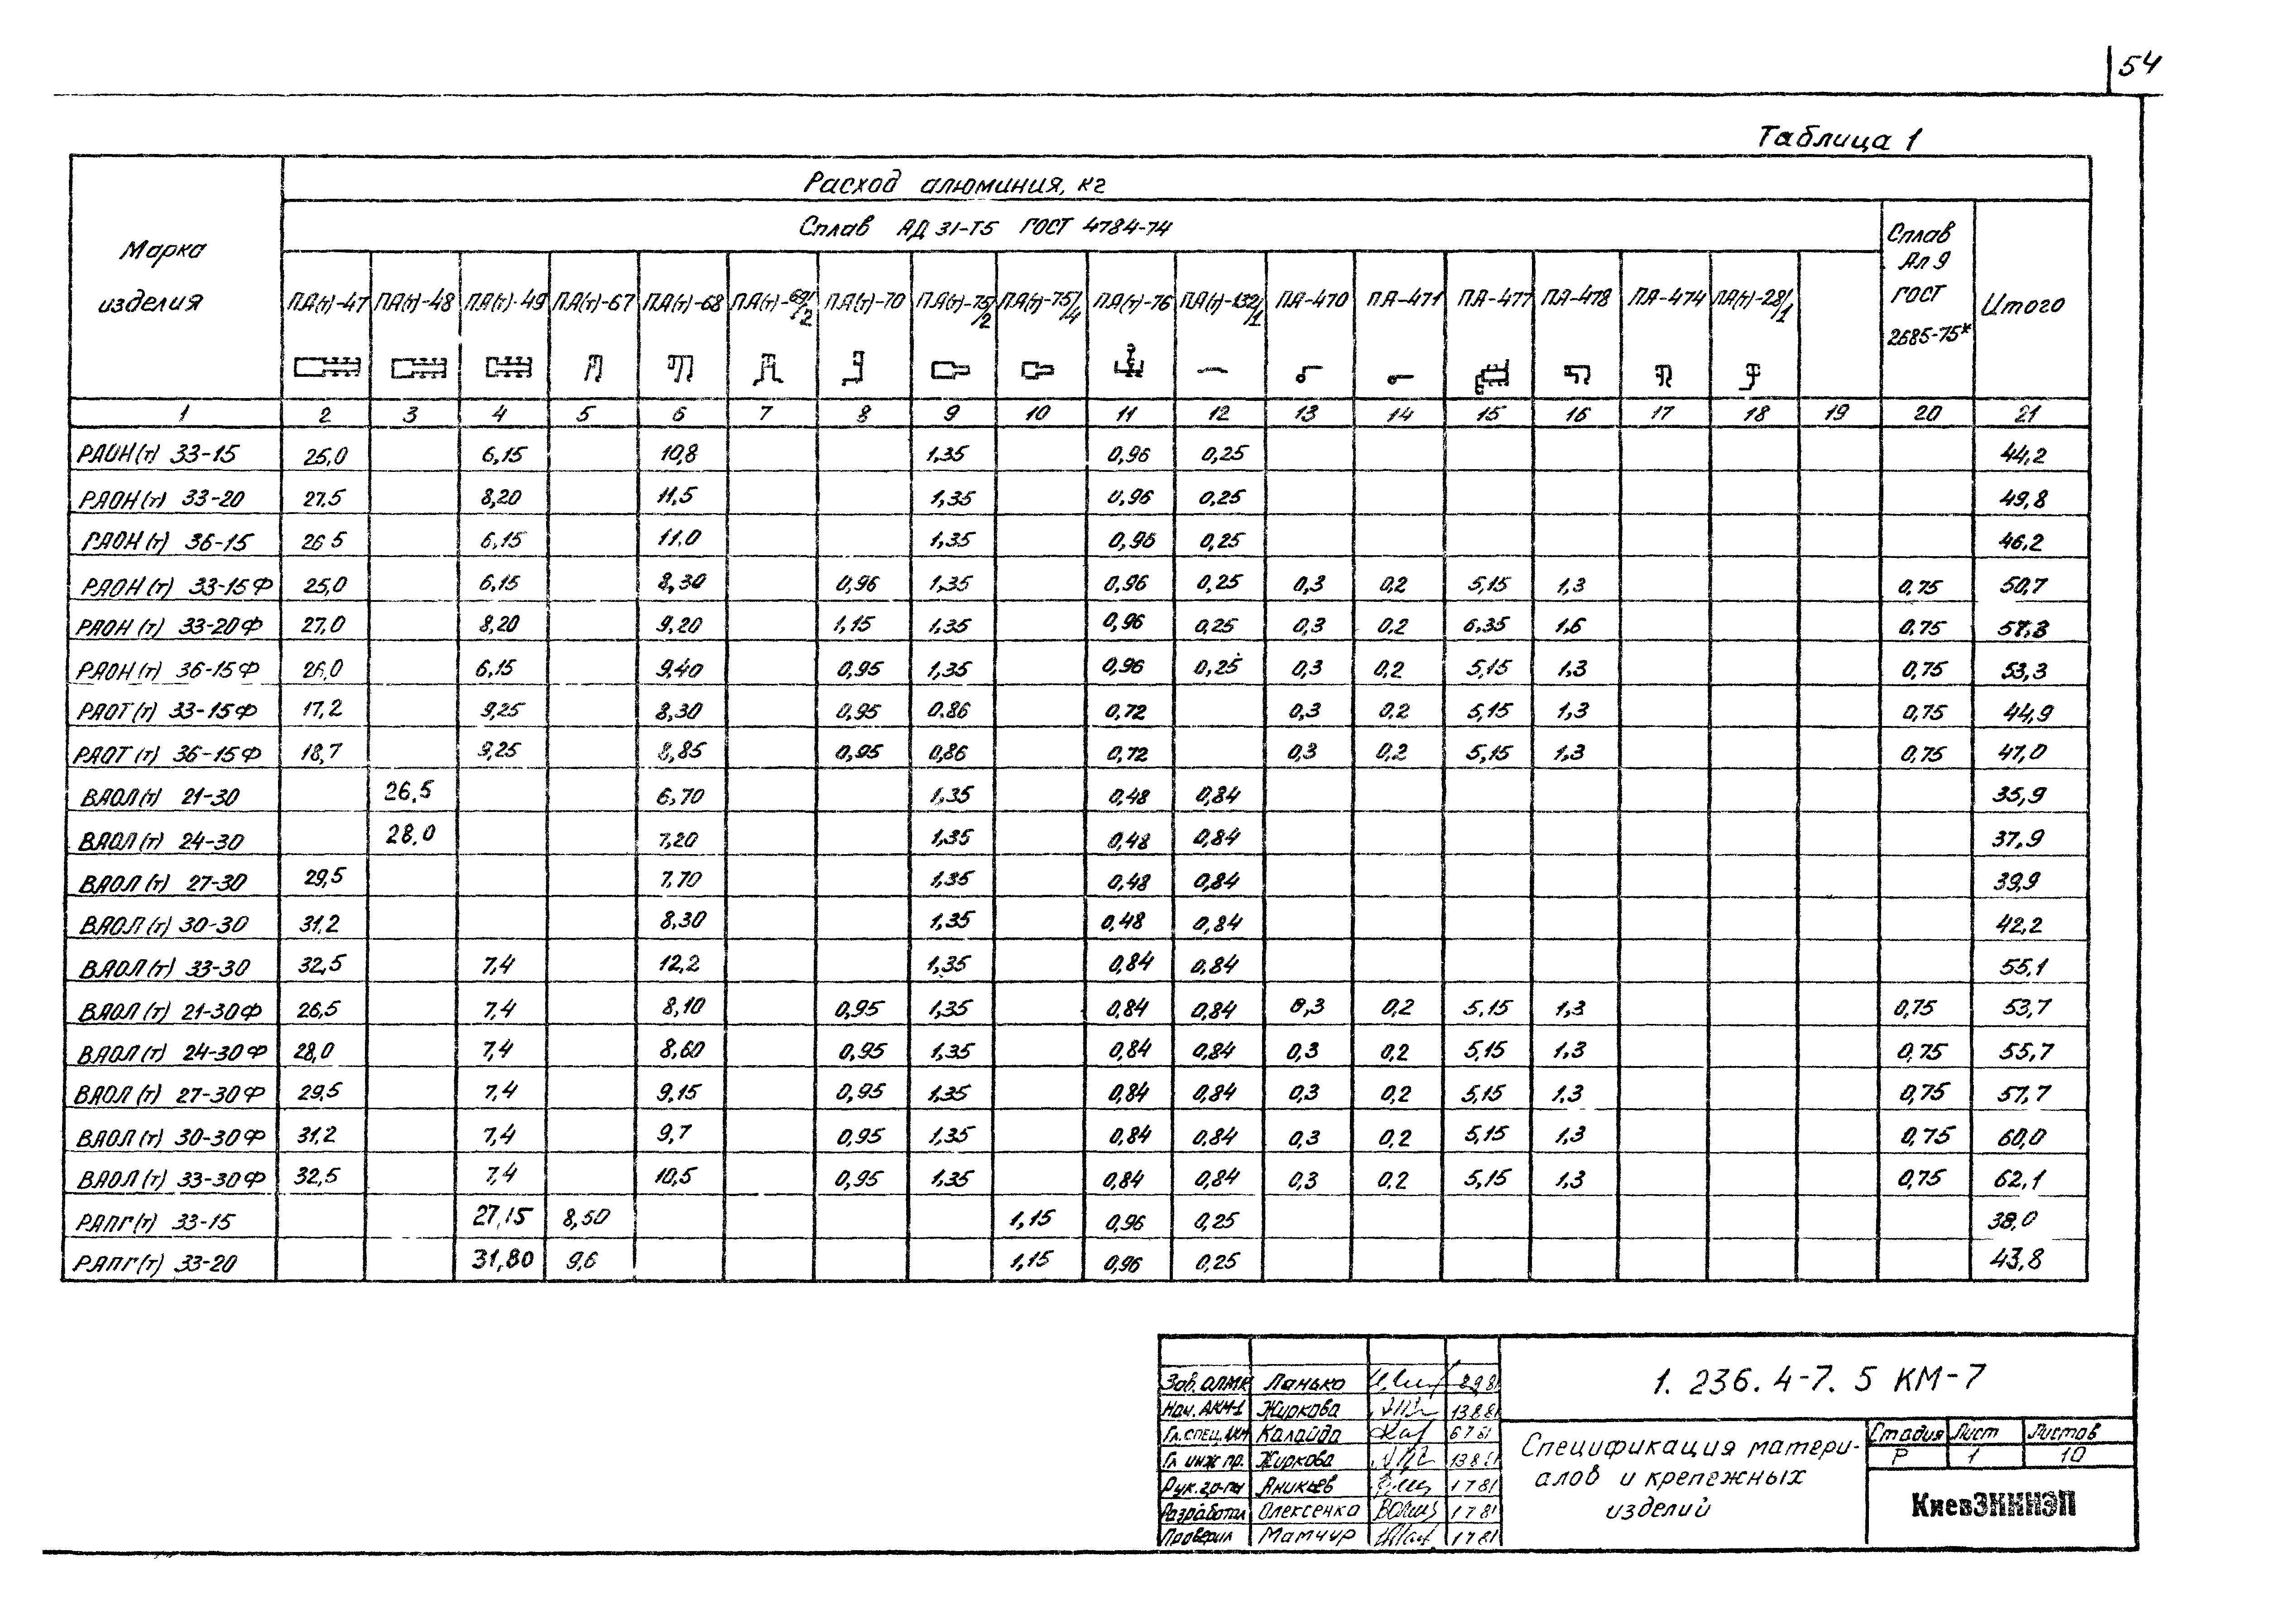 54
Таблица 1
Марка изделия
Расход алюминия, кг
Сплав АД 31-Т5 ГОСТ 4784-74
Сплав Ал 9 ГОСТ 2685-75*
Итого
ПА(т)-47 ПА(т)-48 ПА(т)-49 ПА(т)-67 ПА(т)-68 ПА(т)-69/2 ПА(т)-70 ПА(т)-75/2 ПА(т)-75/4 ПА(т)-76 ПА(т)-132/1 ПА-470 ПА-471 ПА-477 ПА-478 ПА-474 ПА(т)-28/1
1 2 3 4 5 6 7 8 9 10 11 12 13 14 15 16 17 18 19 20 21
РАОН(т) 33-15 25,0 6,15 10,8 1,35 0,96 0,25 44,2
РАОН(т) 33-20 27,5 8,20 11,5 1,35 0,96 0,25 49,8
РАОН(т) 36-15 26 5 6,15 11,0 1,35 0,96 0,25 46,2
РАОН(т) 33-15Ф 25,0 6,15 8,30 0,96 1,35 0,96 0,25 0,3 0,2 5,15 1,3 0,75 50,7
РАОН(т) 33-20Ф 27,0 8,20 9,20 1,15 1,35 0,96 0,25 0,3 0,2 6,35 1,6 0,75 57,3
РАОН(т) 36-15Ф 26,0 6,15 9,40 0,95 1,35 0,96 0,25 0,3 0,2 5,15 1,3 0,75 53,3
РАОТ(т) 33-15Ф 17,2 9,25 8,30 0,95 0,86 0,72 0,3 0,2 5,15 1,3 0,75 44,9
РАОТ(т) 36-15Ф 18,7 9,25 8,85 0,95 0,86 0,72 0,3 0,2 5,15 1,3 0,75 47,0
ВАОЛ(т) 21-30 26,5 6,70 1,35 0,48 0,84 35,9
ВАОЛ(т) 24-30 28,0 7,20 1,35 0,48 0,84 37,9
ВАОЛ(т) 27-30 29,5 7,70 1,35 0,48 0,84 39,9
ВАОЛ(т) 30-30 31,2 8,30 1,35 0,48 0,84 42,2
ВАОЛ(т) 33-30 32,5 7,4 12,2 1,35 0,84 0,84 55,1
ВАОЛ(т) 21-30Ф 26,5 7,4 8,10 0,95 1,35 0,84 0,84 0,3 0,2 5,15 1,3 0,75 53,7
ВАОЛ(т) 24-30Ф 28,0 7,4 8,60 0,95 1,35 0,84 0,84 0,3 0,2 5,15 1,3 0,75 55,7
ВАОЛ(т) 27-30Ф 29,5 7,4 9,15 0,95 1,35 0,84 0,84 0,3 0,2 5,15 1,3 0,75 57,7
ВАОЛ(т) 30-30Ф 31,2 7,4 9,7 0,95 1,35 0,84 0,84 0,3 0,2 5,15 1,3 0,75 60,0
ВАОЛ(т) 33-30Ф 32,5 7,4 10,5 0,95 1,35 0,84 0,84 0,3 0,2 5,15 1,3 0,75 62,1
РАПГ(т) 33-15 27,15 8,50 1,15 0,96 0,25 38,0
РАПГ(т) 33-20 31,80 9,6 1,15 0,96 0,25 43,8
Зав. ОЛМК Ланько
Нач. АКМ-1 Жиркова 13 8 81
Гл. спец. АКМ Калайда 6 7 81
Гл инж пр. Жиркова 13 8 81
Рук. гр-пы Аникиев 1 7 81
Разработал Олексенко 1 7 81
Проверил Мамчур 1 7 81
1. 236. 4-7. 5 КМ-7
Спецификация матери-
алов и крепежных
изделий
Стадия Лист Листов
Р 1 10
КиевЗНИИЭП